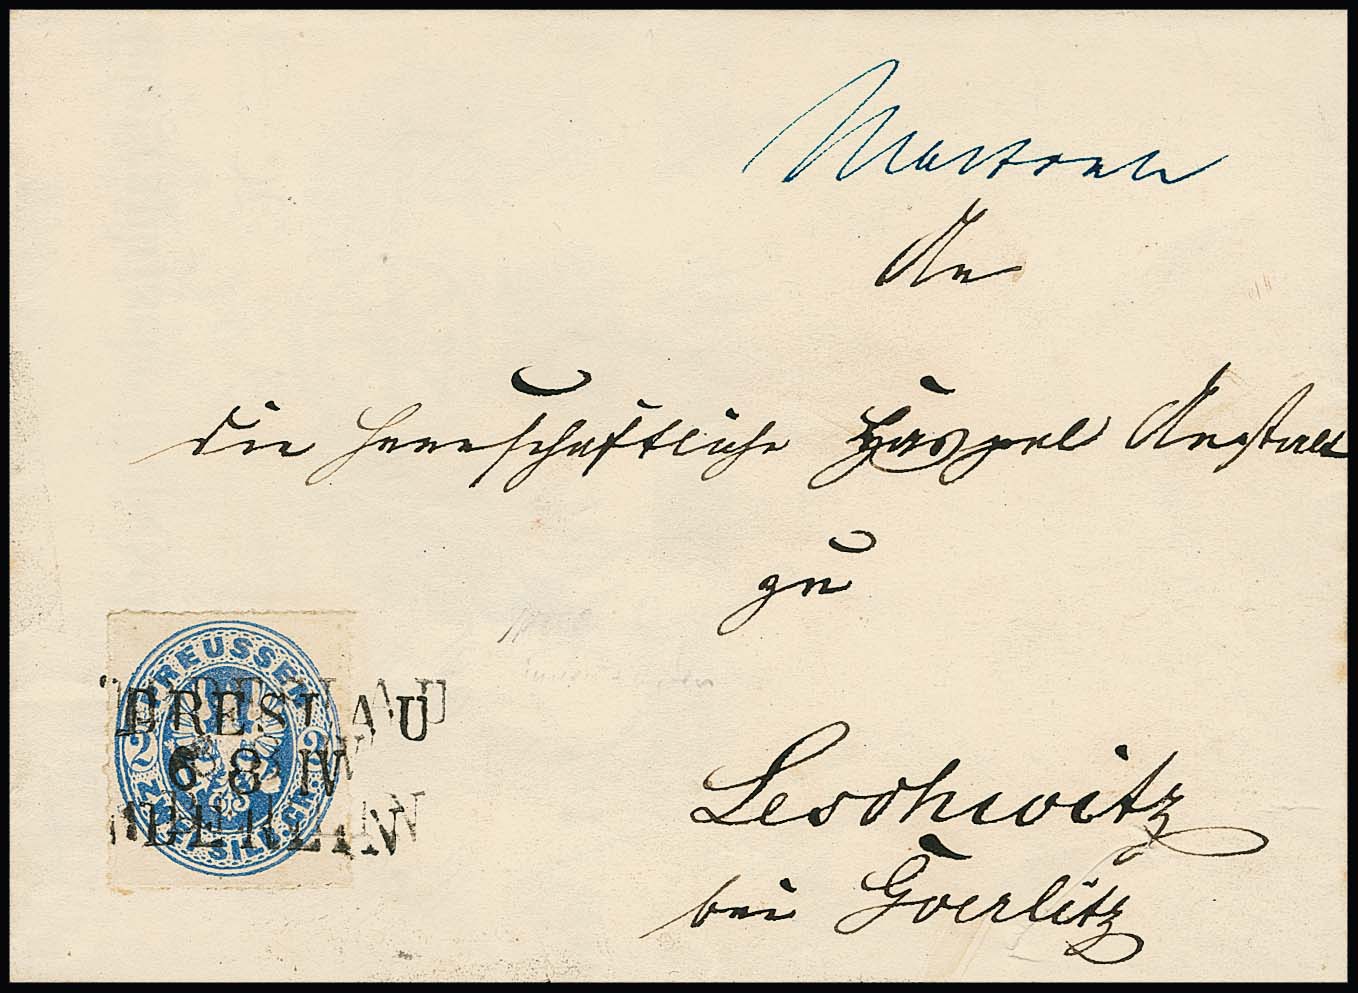 An
die herrschaftliche Haspel Anstalt
zu
Leschwitz
bei Goerlitz
PREUSSEN
2 2
SILB.GR.
BRESLAU
6 8 IV
BERLIN